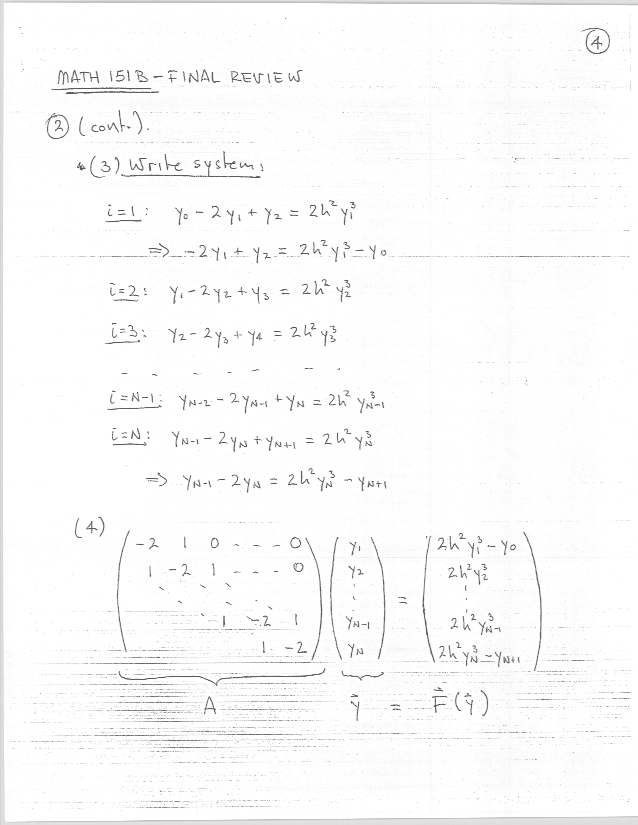 ④
MATH 151B - FINAL REVIEW
② (cont.).
(3) Write system:
i=1: y₀ - 2y₁ + y₂ = 2h²y₁³
⇒ -2y₁ + y₂ = 2h²y₁³ - y₀
i=2: y₁ - 2y₂ + y₃ = 2h² y₂³
i=3: y₂ - 2y₃ + y₄ = 2h² y₃³
- - - - - -
i=N-1: y_{N-2} - 2y_{N-1} + y_N = 2h² y_{N-1}³
i=N: y_{N-1} - 2y_N + y_{N+1} = 2h² y_N³
⇒ y_{N-1} - 2y_N = 2h² y_N³ - y_{N+1}
(4)
( -2 1 0 - - - 0 ) ( y₁ ) ( 2h²y₁³ - y₀ )
( 1 -2 1 - - - 0 ) ( y₂ ) ( 2h²y₂³ )
( ⋱ ⋱ ⋱ ) ( ⋮ ) = ( ⋮ )
( 1 -2 1 ) ( y_{N-1} ) ( 2h² y_{N-1}³ )
( 1 -2 ) ( y_N ) ( 2h² y_N³ - y_{N+1} )
A y⃗ = F⃗(y⃗)